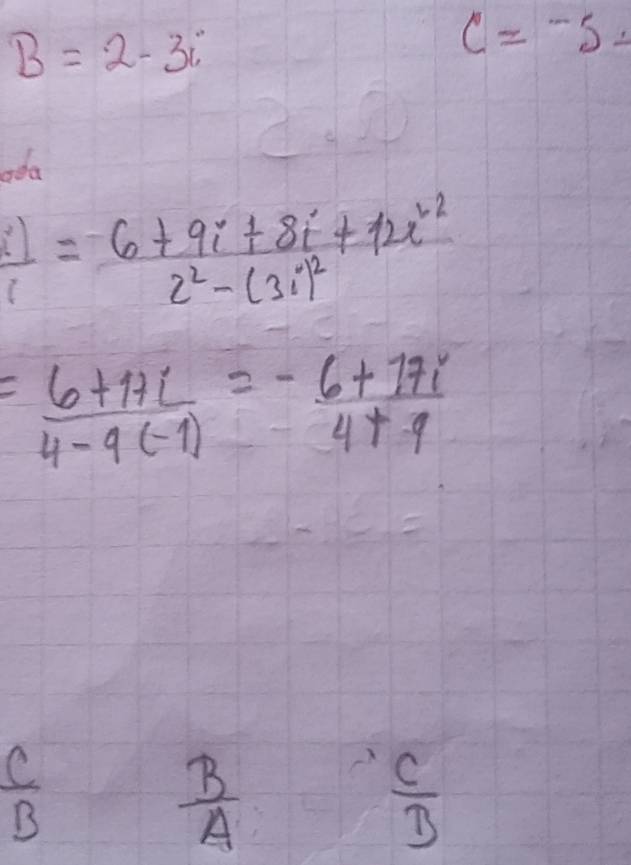 B = 2 - 3i C = -5 -
ada
i) / i = 6 + 9i + 8i + 12i² / 2² - (3i)²
= 6 + 17i / 4 - 9(-1) = - 6 + 17i / 4 + 9
C / B B / A C / B